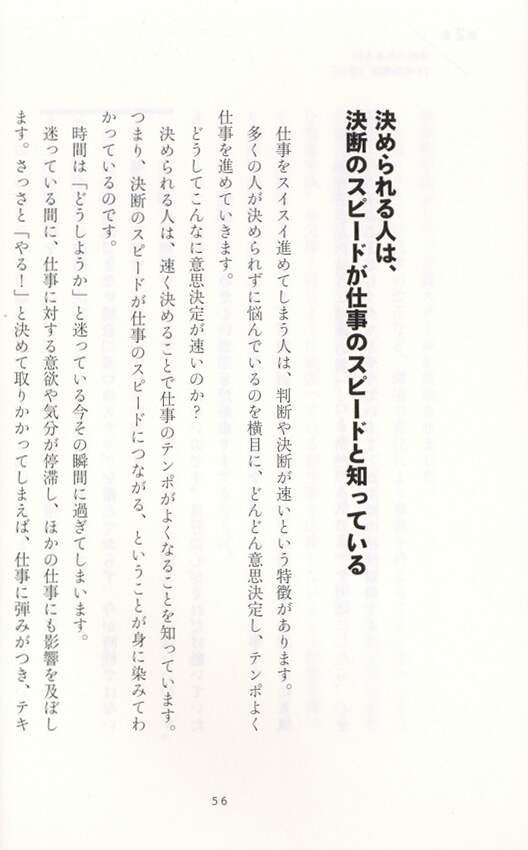 決められる人は、
決断のスピードが仕事のスピードと知っている
仕事をスイスイ進めてしまう人は、判断や決断が速いという特徴があります。
多くの人が決められずに悩んでいるのを横目に、どんどん意思決定し、テンポよく
仕事を進めていきます。
どうしてこんなに意思決定が速いのか？
決められる人は、速く決めることで仕事のテンポがよくなることを知っています。
つまり、決断のスピードが仕事のスピードにつながる、ということが身に染みてわ
かっているのです。
時間は「どうしようか」と迷っている今その瞬間に過ぎてしまいます。
迷っている間に、仕事に対する意欲や気分が停滞し、ほかの仕事にも影響を及ぼし
ます。さっさと「やる！」と決めて取りかかってしまえば、仕事に弾みがつき、テキ
56